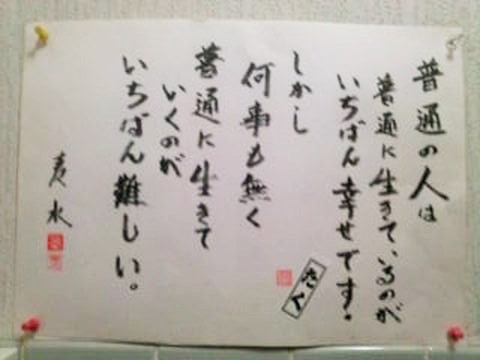 普通の人は
普通に生きているのが
いちばん幸せです。
しかし
何事も無く
普通に生きて
いくのが
いちばん難しい。